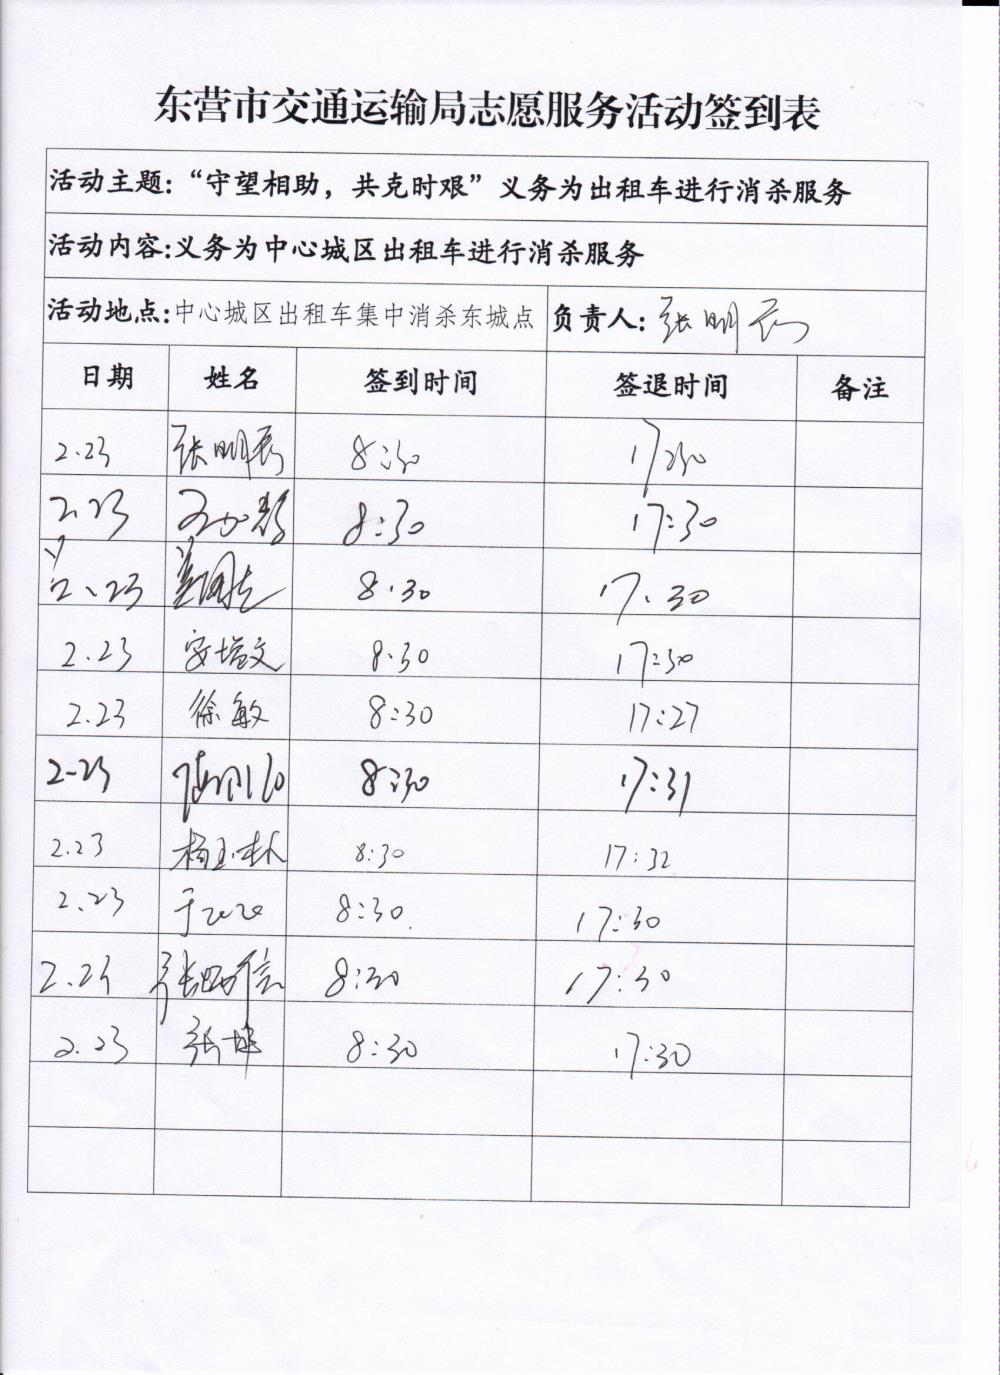 东营市交通运输局志愿服务活动签到表
活动主题：“守望相助，共克时艰”义务为出租车进行消杀服务
活动内容：义务为中心城区出租车进行消杀服务
活动地点：中心城区出租车集中消杀东城点 负责人：张明
日期 姓名 签到时间 签退时间 备注
2.23 张明 8:30 17:30
2.23 8:30 17:30
2.23 8.30 17.30
2.23 安增文 8.30 17:30
2.23 徐敏 8:30 17:27
2-23 8:30 17:31
2.23 杨玉林 8:30 17:32
2.23 于 8:30 17:30
2.23 张 信 8:30 17:30
2.23 张 8:30 17:30